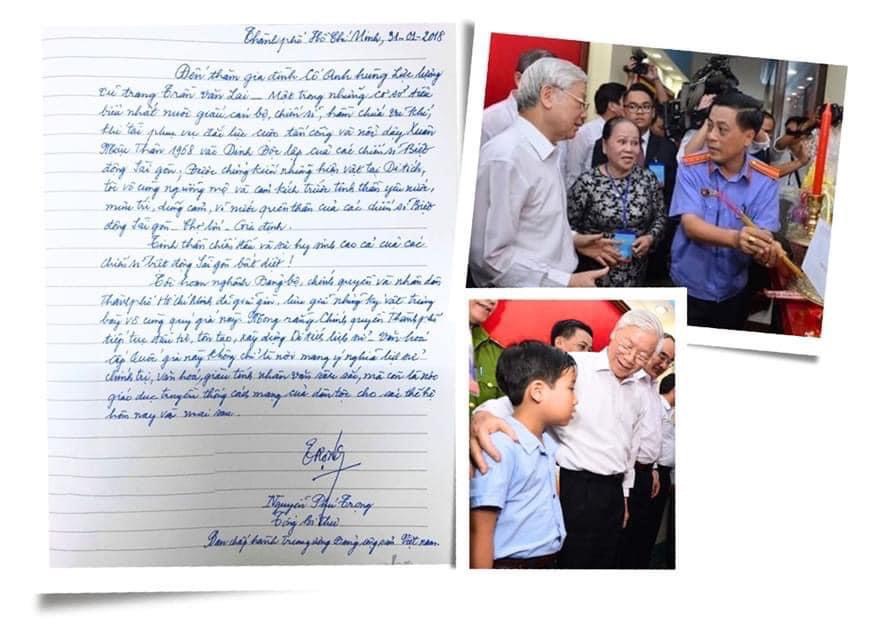 Thành phố Hồ Chí Minh, 31-01-2018
Đến thăm gia đình Cố Anh hùng Lực lượng
vũ trang Trần Văn Lai - Một trong những cơ sở tiêu
biểu nhất nuôi giấu cán bộ, chiến sĩ, hầm chứa vũ khí,
khí tài phục vụ đắc lực cuộc tấn công và nổi dậy Xuân
Mậu Thân 1968 vào Dinh Độc lập của các chiến sĩ Biệt
động Sài gòn; Được chứng kiến những hiện vật tại Di tích,
tôi vô cùng ngưỡng mộ và cảm kích trước tinh thần yêu nước,
mưu trí, dũng cảm, vì nước quên thân của các chiến sĩ Biệt
động Sài gòn - Chợ lớn - Gia định.
Tinh thần chiến đấu và sự hy sinh cao cả của các
chiến sĩ biệt động Sài gòn bất diệt!
Tôi hoan nghênh Đảng bộ, chính quyền và nhân dân
Thành phố Hồ Chí Minh đã giữ gìn, lưu giữ những kỷ vật trưng
bày vô cùng quý giá này. Mong rằng, Chính quyền Thành phố
tiếp tục đầu tư, tôn tạo, xây dựng Di tích lịch sử - Văn hoá
cấp Quốc gia này không chỉ là nơi mang ý nghĩa lịch sử
chính trị, văn hoá, giàu tính nhân văn sâu sắc, mà còn là nơi
giáo dục truyền thống cách mạng của dân tộc cho các thế hệ
hôm nay và mai sau.
TRỌNG
Nguyễn Phú Trọng
Tổng Bí Thư
Ban chấp hành Trung ương Đảng cộng sản Việt nam